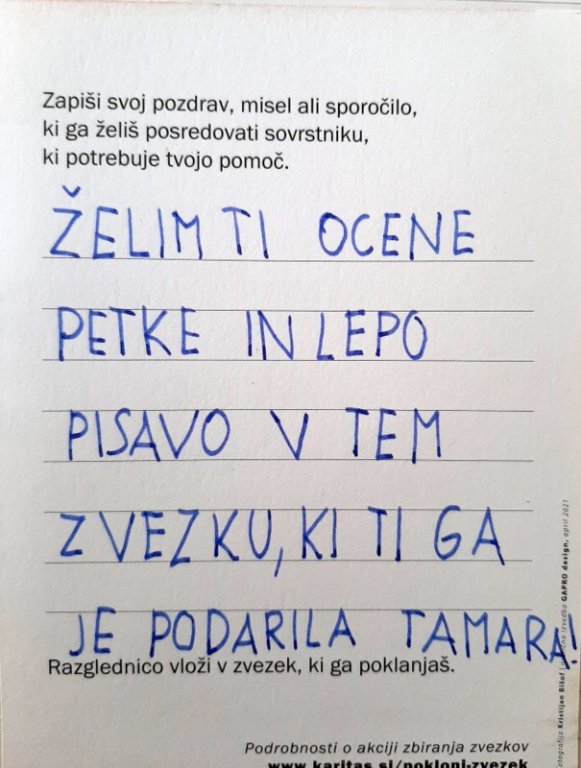 Zapiši svoj pozdrav, misel ali sporočilo,
ki ga želiš posredovati sovrstniku,
ki potrebuje tvojo pomoč.
ŽELIM TI OCENE
PETKE IN LEPO
PISAVO V TEM
ZVEZKU, KI TI GA
JE PODARILA TAMARA!
Razglednico vloži v zvezek, ki ga poklanjaš.
Podrobnosti o akciji zbiranja zvezkov
www.karitas.si/pokloni-zvezek
Fotografija Kristijan Bišof izvedba GAPRO design, april 2021